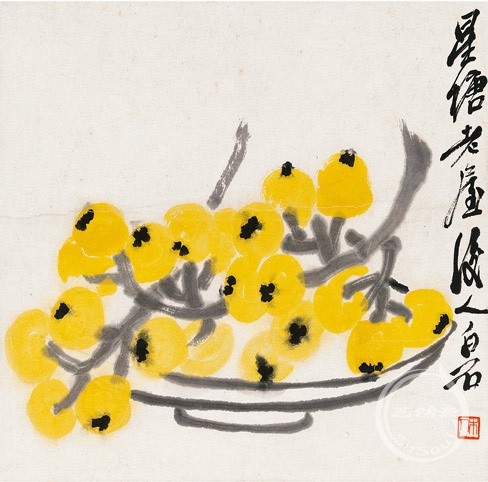 星塘老屋後人白石